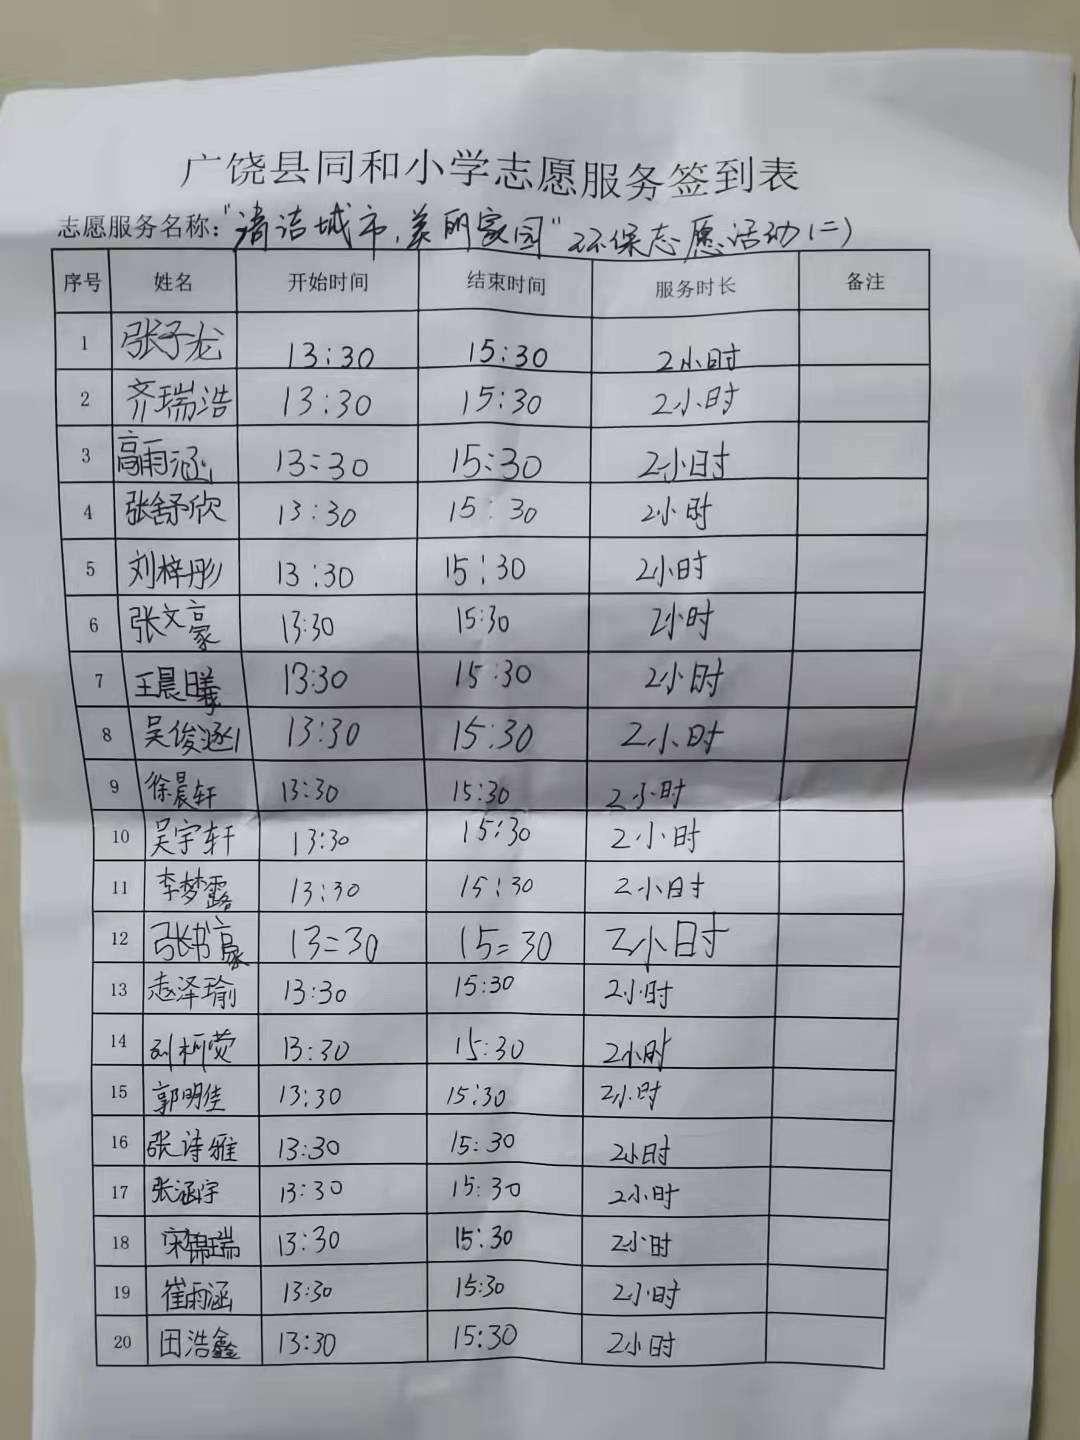 广饶县同和小学志愿服务签到表
志愿服务名称:"清洁城市,美丽家园"环保志愿活动(二)
序号 姓名 开始时间 结束时间 服务时长 备注
1 张子龙 13:30 15:30 2小时
2 齐瑞浩 13:30 15:30 2小时
3 高雨涵 13:30 15:30 2小时
4 张舒欣 13:30 15:30 2小时
5 刘梓彤 13:30 15:30 2小时
6 张文豪 13:30 15:30 2小时
7 王晨曦 13:30 15:30 2小时
8 吴俊涵 13:30 15:30 2小时
9 徐晨轩 13:30 15:30 2小时
10 吴宇轩 13:30 15:30 2小时
11 李梦露 13:30 15:30 2小时
12 张书豪 13=30 15=30 2小时
13 赵泽瑜 13:30 15:30 2小时
14 刘柯荧 13:30 15:30 2小时
15 郭明佳 13:30 15:30 2小时
16 张诗雅 13:30 15:30 2小时
17 张涵宇 13:30 15:30 2小时
18 宋锦瑞 13:30 15:30 2小时
19 崔雨涵 13:30 15:30 2小时
20 田浩鑫 13:30 15:30 2小时